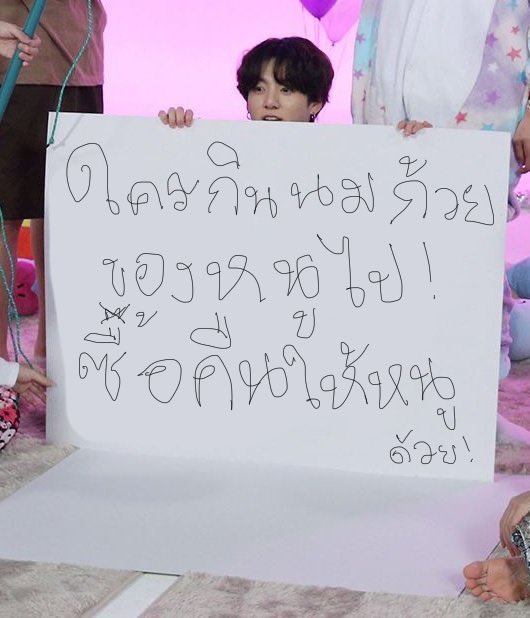 ใครกินนมถ้วย
ของหนูไป!
ซื้อคืนให้หนู
ด้วย!